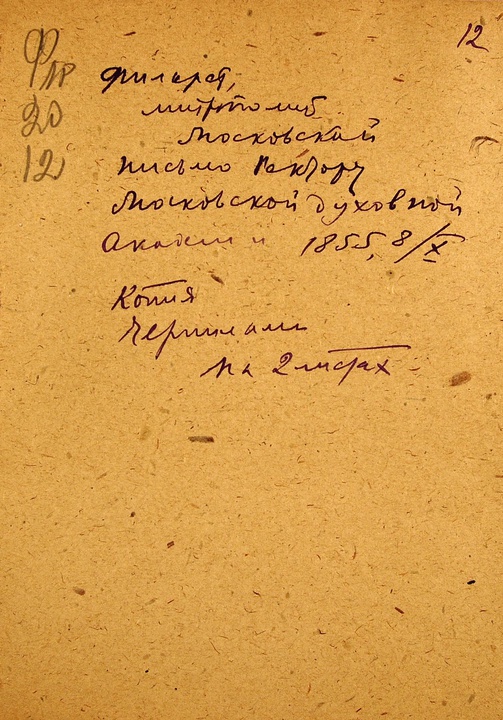 12
Ф 1р
20
12
Филарет,
митрополит
Московский
письмо Ректору
Московской духовной
Академии 1855, 8/X
Копия
Чернилами
на 2 листах